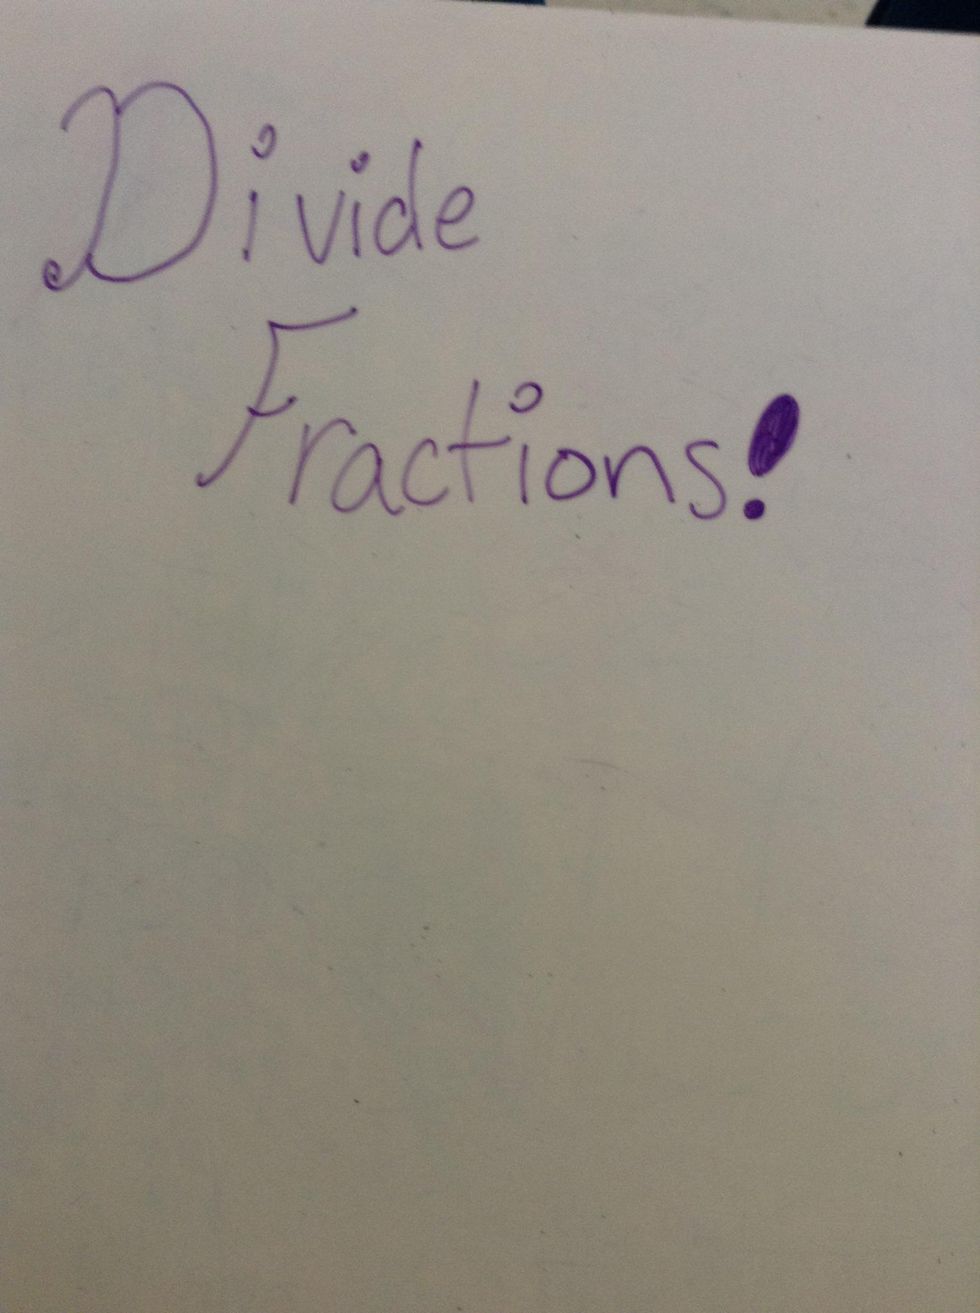 Divide
Fractions!